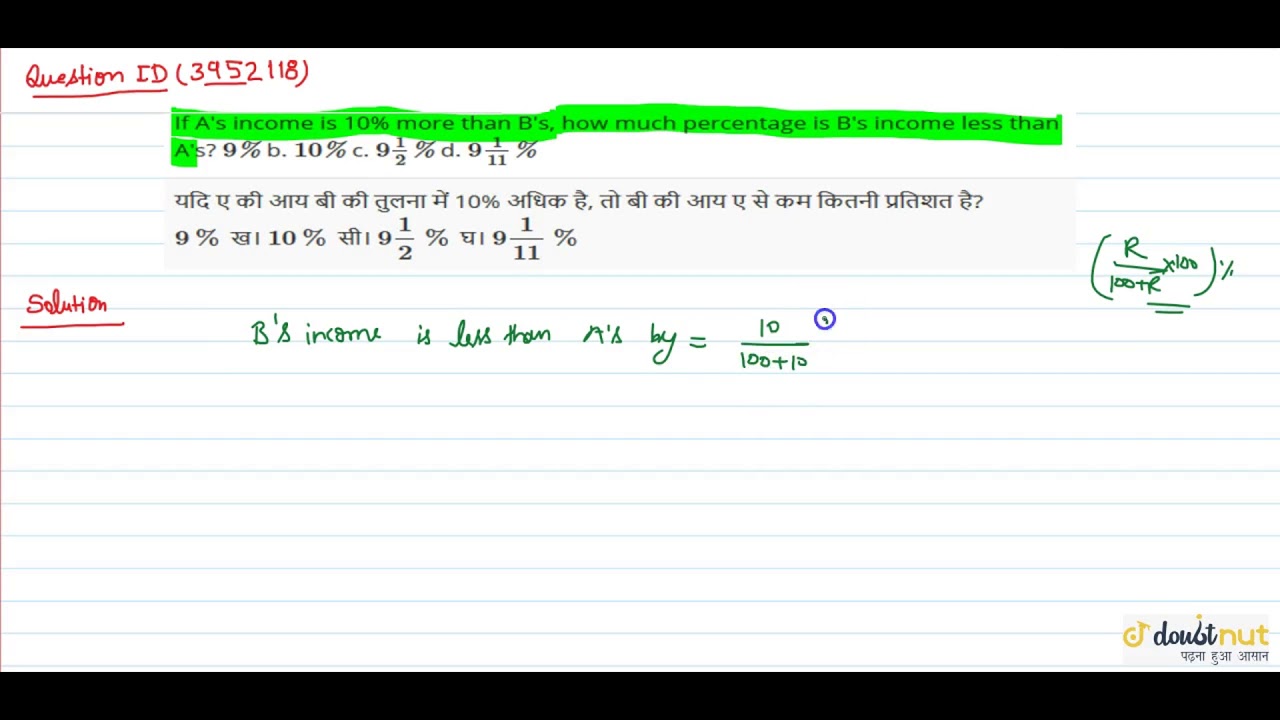 Question ID (3952118)
If A's income is 10% more than B's, how much percentage is B's income less than
A's? 9% b. 10% c. 9 1/2 % d. 9 1/11 %
यदि ए की आय बी की तुलना में 10% अधिक है, तो बी की आय ए से कम कितनी प्रतिशत है?
9 % ख। 10 % सी। 9 1/2 % घ। 9 1/11 %
(R/(100+R) ×100) %
Solution
B's income is less than A's by = 10/(100+10)
doubtnut
पढ़ना हुआ आसान